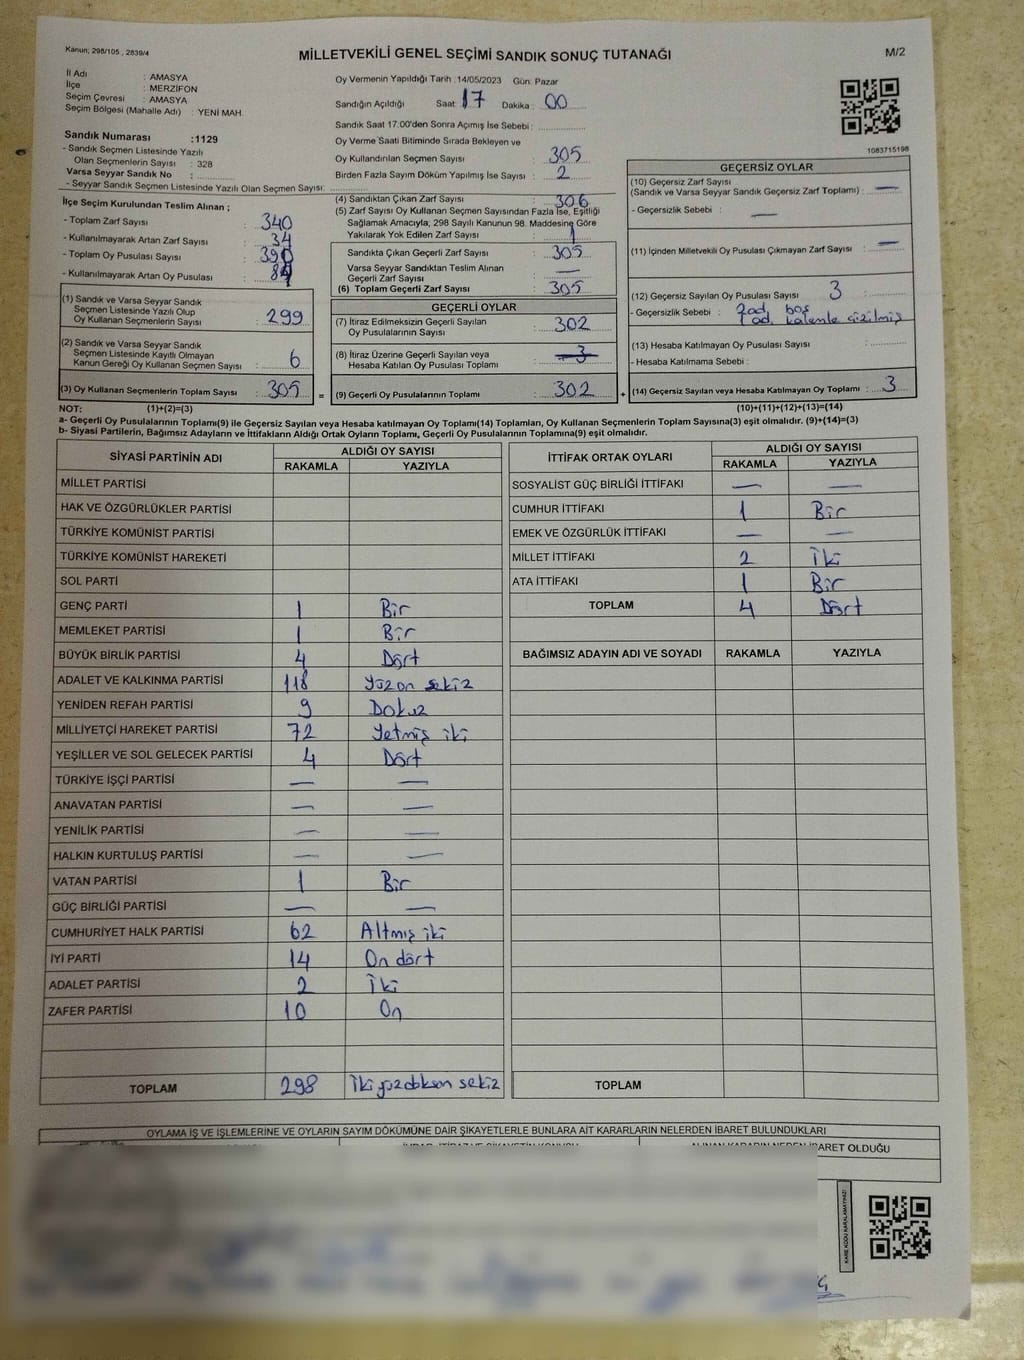 Kanun; 298/105 , 2839/4
MİLLETVEKİLİ GENEL SEÇİMİ SANDIK SONUÇ TUTANAĞI
M/2
İl Adı : AMASYA
İlçe : MERZİFON
Seçim Çevresi : AMASYA
Seçim Bölgesi (Mahalle Adı) : YENİ MAH
Sandık Numarası :1129
- Sandık Seçmen Listesinde Yazılı
Olan Seçmenlerin Sayısı : 328
Varsa Seyyar Sandık No :
- Seyyar Sandık Seçmen Listesinde Yazılı Olan Seçmen Sayısı:
Oy Vermenin Yapıldığı Tarih :14/05/2023 Gün: Pazar
Sandığın Açıldığı Saat: 17 Dakika : 00
Sandık Saat 17:00'den Sonra Açımış İse Sebebi :
Oy Verme Saati Bitiminde Sırada Bekleyen ve
Oy Kullandırılan Seçmen Sayısı : 305
Birden Fazla Sayım Döküm Yapılmış İse Sayısı : 2
1083715198
İlçe Kurulundan Teslim Alınan ;
- Toplam Zarf Sayısı : 340
- Kullanılmayarak Artan Zarf Sayısı : 34
- Toplam Oy Pusulası Sayısı : 390
- Kullanılmayarak Artan Oy Pusulası :
(1) Sandık ve Varsa Seyyar Sandık
Seçmen Listesinde Yazılı Olup
Oy Kullanan Seçmenlerin Sayısı : 299
(2) Sandık ve Varsa Seyyar Sandık
Seçmen Listesinde Kayıtlı Olmayan
Kanun Gereği Oy Kullanan Seçmen Sayısı : 6
(3) Oy Kullanan Seçmenlerin Toplam Sayısı : 305
(4) Sandıktan Çıkan Zarf Sayısı : 306
(5) Zarf Sayısı Oy Kullanan Seçmen Sayısından Fazla İse, Eşitliği
Sağlamak Amacıyla; 298 Sayılı Kanunun 98. Maddesine Göre
Yakılarak Yok Edilen Zarf Sayısı : 1
Sandıkta Çıkan Geçerli Zarf Sayısı : 305
Varsa Seyyar Sandıktan Teslim Alınan
Geçerli Zarf Sayısı : —
(6) Toplam Geçerli Zarf Sayısı : 305
GEÇERLİ OYLAR
(7) İtiraz Edilmeksizin Geçerli Sayılan
Oy Pusulalarının Sayısı : 302
(8) İtiraz Üzerine Geçerli Sayılan veya
Hesaba Katılan Oy Pusulası Toplamı : 3
= (9) Geçerli Oy Pusulalarının Toplamı : 302 +
GEÇERSİZ OYLAR
(10) Geçersiz Zarf Sayısı
(Sandık ve Varsa Seyyar Sandık Geçersiz Zarf Toplamı) : —
- Geçersizlik Sebebi : —
(11) İçinden Milletvekili Oy Pusulası Çıkmayan Zarf Sayısı : —
(12) Geçersiz Sayılan Oy Pusulası Sayısı 3
- Geçersizlik Sebebi : 2 ad. boş
1 ad. kalemle çizilmiş
(13) Hesaba Katılmayan Oy Pusulası Sayısı :
- Hesaba Katılmama Sebebi :
(14) Geçersiz Sayılan veya Hesaba Katılmayan Oy Toplamı : 3
NOT: (1)+(2)=(3)
(10)+(11)+(12)+(13)=(14)
a- Geçerli Oy Pusulalarının Toplamı(9) ile Geçersiz Sayılan veya Hesaba Katılmayan Oy Toplamı(14) Toplamları, Oy Kullanan Seçmenlerin Toplam Sayısına(3) eşit olmalıdır. (9)+(14)=(3)
b- Siyasi Partilerin, Bağımsız Adayların ve İttifakların Aldığı Ortak Oyların Toplamı, Geçerli Oy Pusulalarının Toplamına(9) eşit olmalıdır.
SİYASİ PARTİNİN ADI
ALDIĞI OY SAYISI
RAKAMLA YAZIYLA
MİLLET PARTİSİ
HAK VE ÖZGÜRLÜKLER PARTİSİ
TÜRKİYE KOMÜNİST PARTİSİ
TÜRKİYE KOMÜNİST HAREKETİ
SOL PARTİ
GENÇ PARTİ 1 Bir
MEMLEKET PARTİSİ 1 Bir
BÜYÜK BİRLİK PARTİSİ 4 Dört
ADALET VE KALKINMA PARTİSİ 118 Yüz on sekiz
YENİDEN REFAH PARTİSİ 9 Dokuz
MİLLİYETÇİ HAREKET PARTİSİ 72 Yetmiş iki
YEŞİLLER VE SOL GELECEK PARTİSİ 4 Dört
TÜRKİYE İŞÇİ PARTİSİ — —
ANAVATAN PARTİSİ — —
YENİLİK PARTİSİ — —
HALKIN KURTULUŞ PARTİSİ — —
VATAN PARTİSİ 1 Bir
GÜÇ BİRLİĞİ PARTİSİ — —
CUMHURİYET HALK PARTİSİ 62 Altmış iki
İYİ PARTİ 14 On dört
ADALET PARTİSİ 2 İki
ZAFER PARTİSİ 10 On
TOPLAM 298 İki yüz doksan sekiz
İTTİFAK ORTAK OYLARI
ALDIĞI OY SAYISI
RAKAMLA YAZIYLA
SOSYALİST GÜÇ BİRLİĞİ İTTİFAKI — —
CUMHUR İTTİFAKI 1 Bir
EMEK VE ÖZGÜRLÜK İTTİFAKI — —
MİLLET İTTİFAKI 2 İki
ATA İTTİFAKI 1 Bir
TOPLAM 4 Dört
BAĞIMSIZ ADAYIN ADI VE SOYADI RAKAMLA YAZIYLA
TOPLAM
OYLAMA İŞ VE İŞLEMLERİNE VE OYLARIN SAYIM DÖKÜMÜNE DAİR ŞİKAYETLERLE BUNLARA AİT KARARLARIN NELERDEN İBARET BULUNDUKLARI
ALINAN KARARIN NEDEN İBARET OLDUĞU
KARE KODU KARALAMAYINIZ!